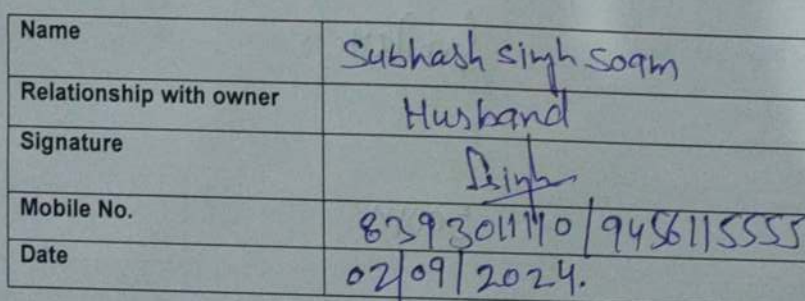 Name Subhash singh Soam
Relationship with owner Husband
Signature Singh
Mobile No. 8393011110/9456115555
Date 02/09/2024.